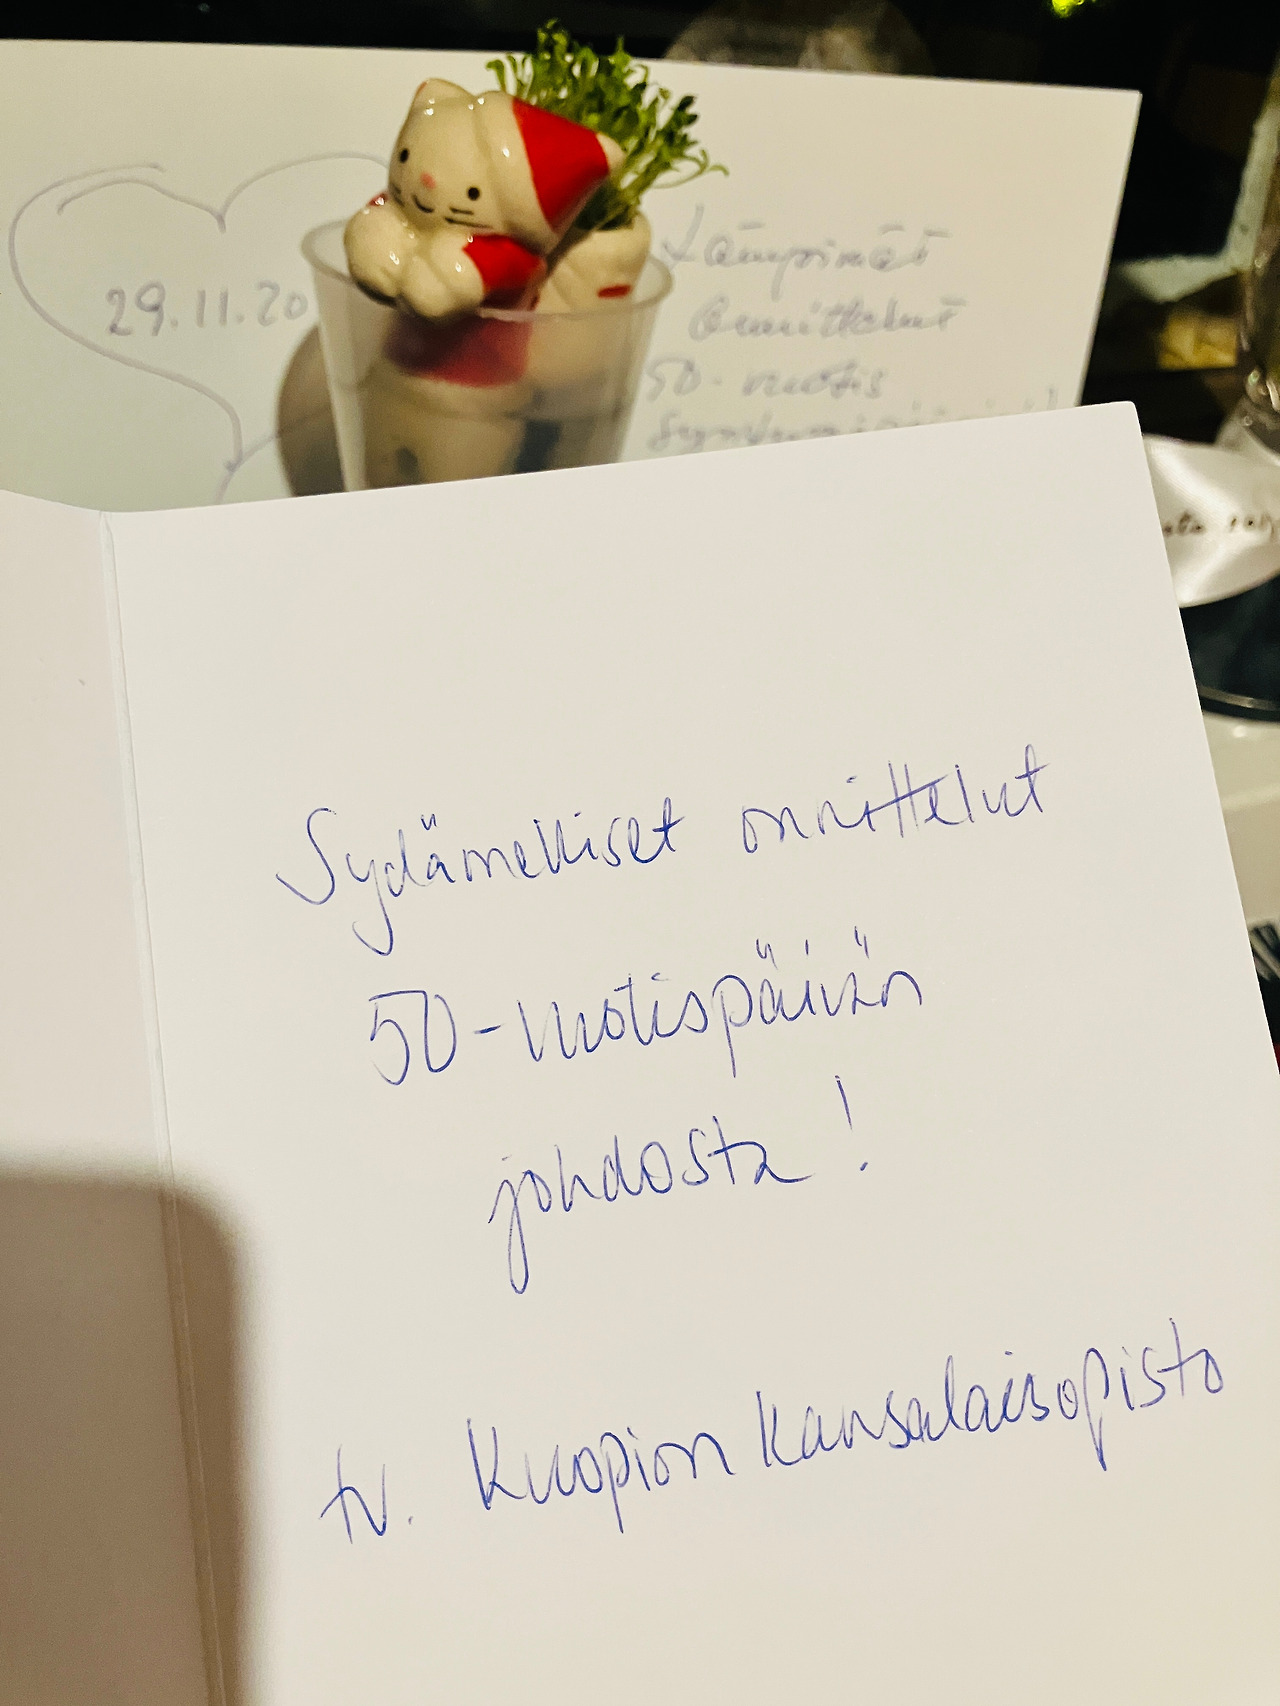 29.11.20
Lämpimät
Onnittelut
50-vuotis
Sydämelliset onnittelut
50-vuotispäivän
johdosta!
tv. Kuopion kansalaisopisto